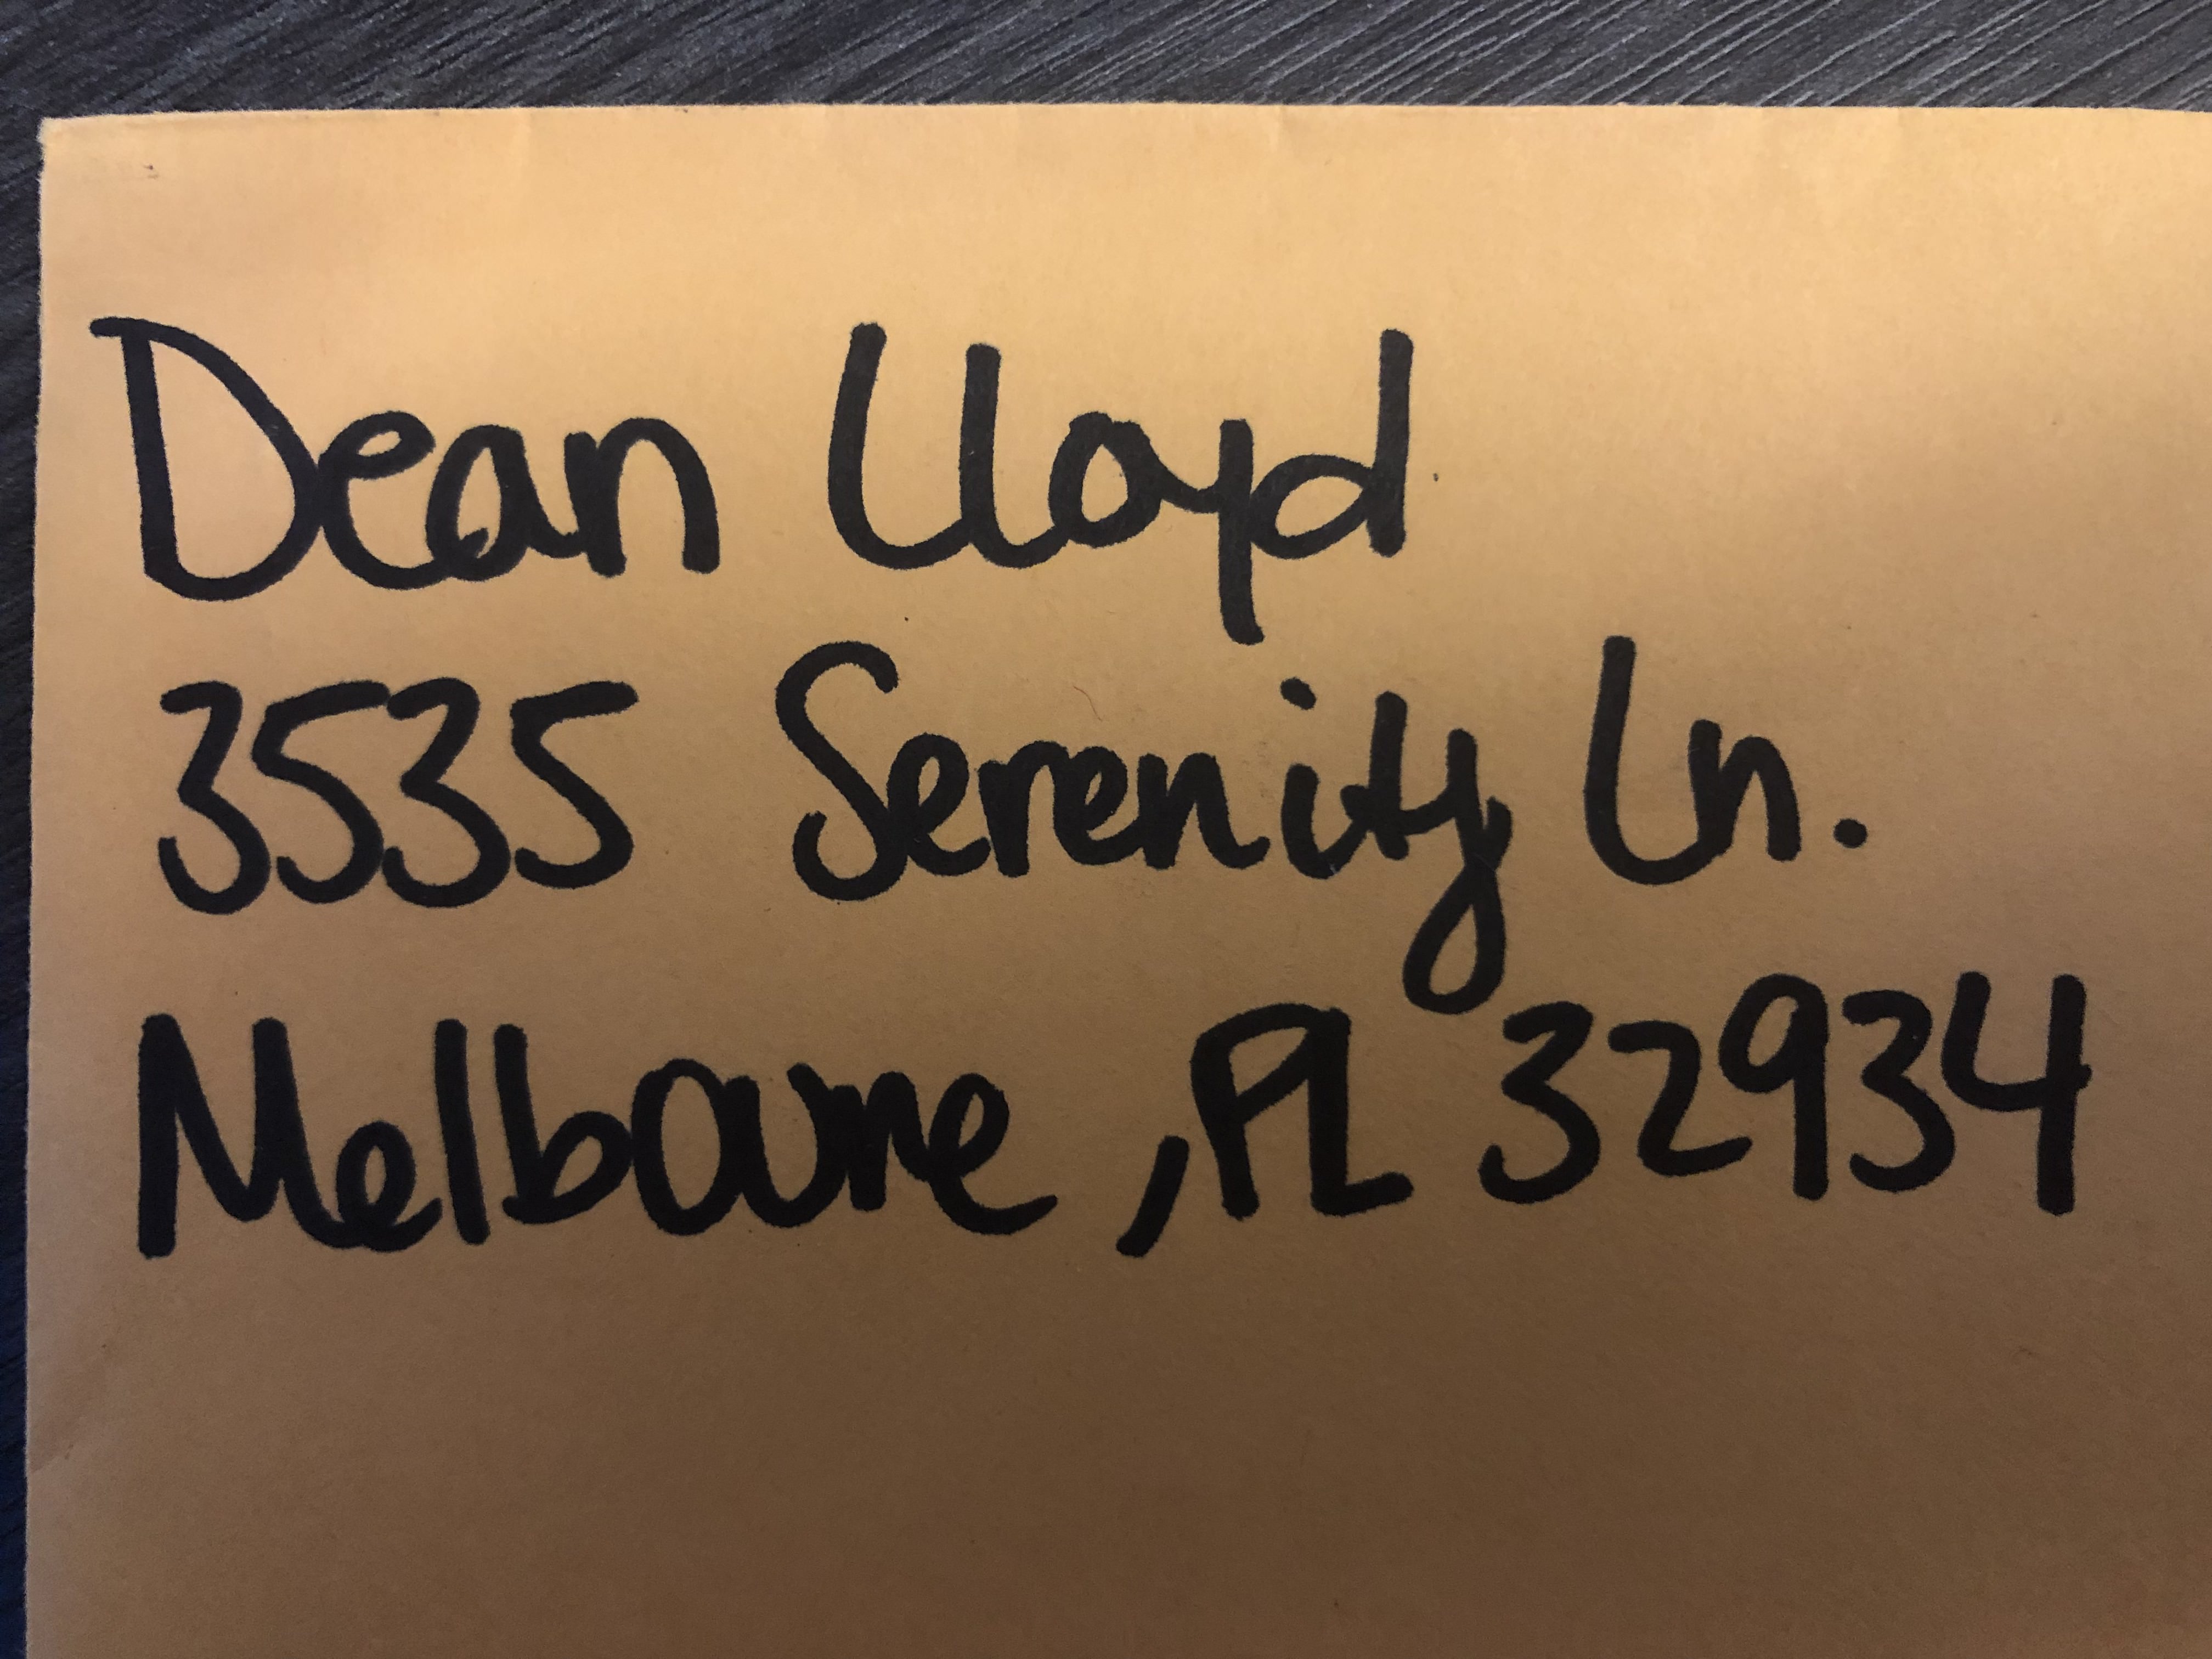 Dean Lloyd
3535 Serenity Ln.
Melbourne, FL 32934